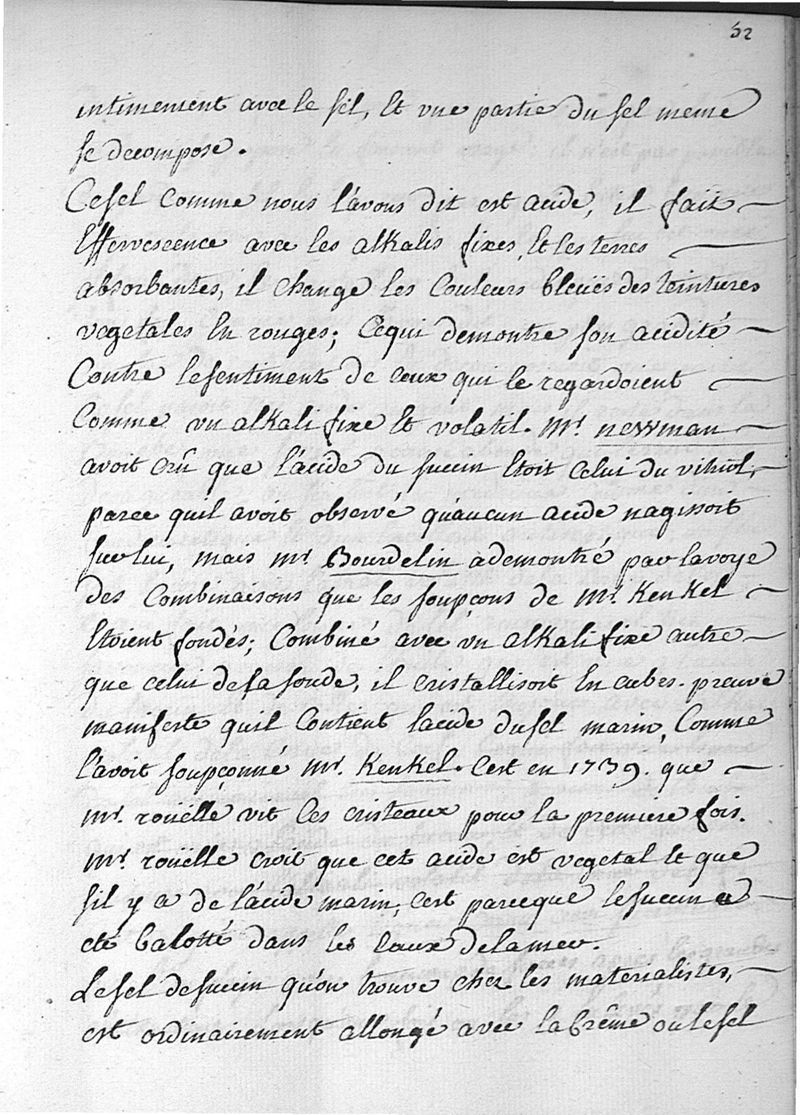 52
intimement avec le sel, et vne partie du sel meme
se decompose.
Ce sel comme nous l'avons dit est acide, il fait
effervescence avec les alkalis fixes, et les terres
absorbantes, il change les couleurs bleuës des teintures
vegetales en rouges; Ce qui demontre son acidité
Contre le sentiment de ceux qui le regardoient
Comme vn alkali fixe et volatil. Mr. newman
avoit crû que l'acide du succin etoit celui du vitriol,
parce quil avoit observé qu'aucun acide n'agissoit
sur lui, mais mr Bourdelin à demontré par la voye
des Combinaisons que les soupçons de Mr. Kenkel
etoient fondés; Combiné avec vn alkali fixe autre
que celui de la soude, il cristallisoit en cubes. preuve
manifeste quil contient lacide du sel marin, Comme
l'avoit soupçonné Mr. Kenkel. C'est en 1739. que
Mr. rouëlle vit ces cristeaux pour la premiere fois.
Mr. rouëlle croit que cet acide est vegetal et que
s'il y a de l'acide marin, c'est parceque le succin a
eté balotté dans les eaux de la mer.
Le sel de succin qu'on trouve chez les materialistes,
est ordinairement allongé avec la crême ou le sel